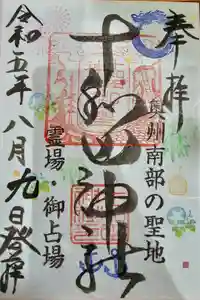 奉拝
奥州南部の聖地
十和田神社
霊場・御占場
令和五年八月九日登拝